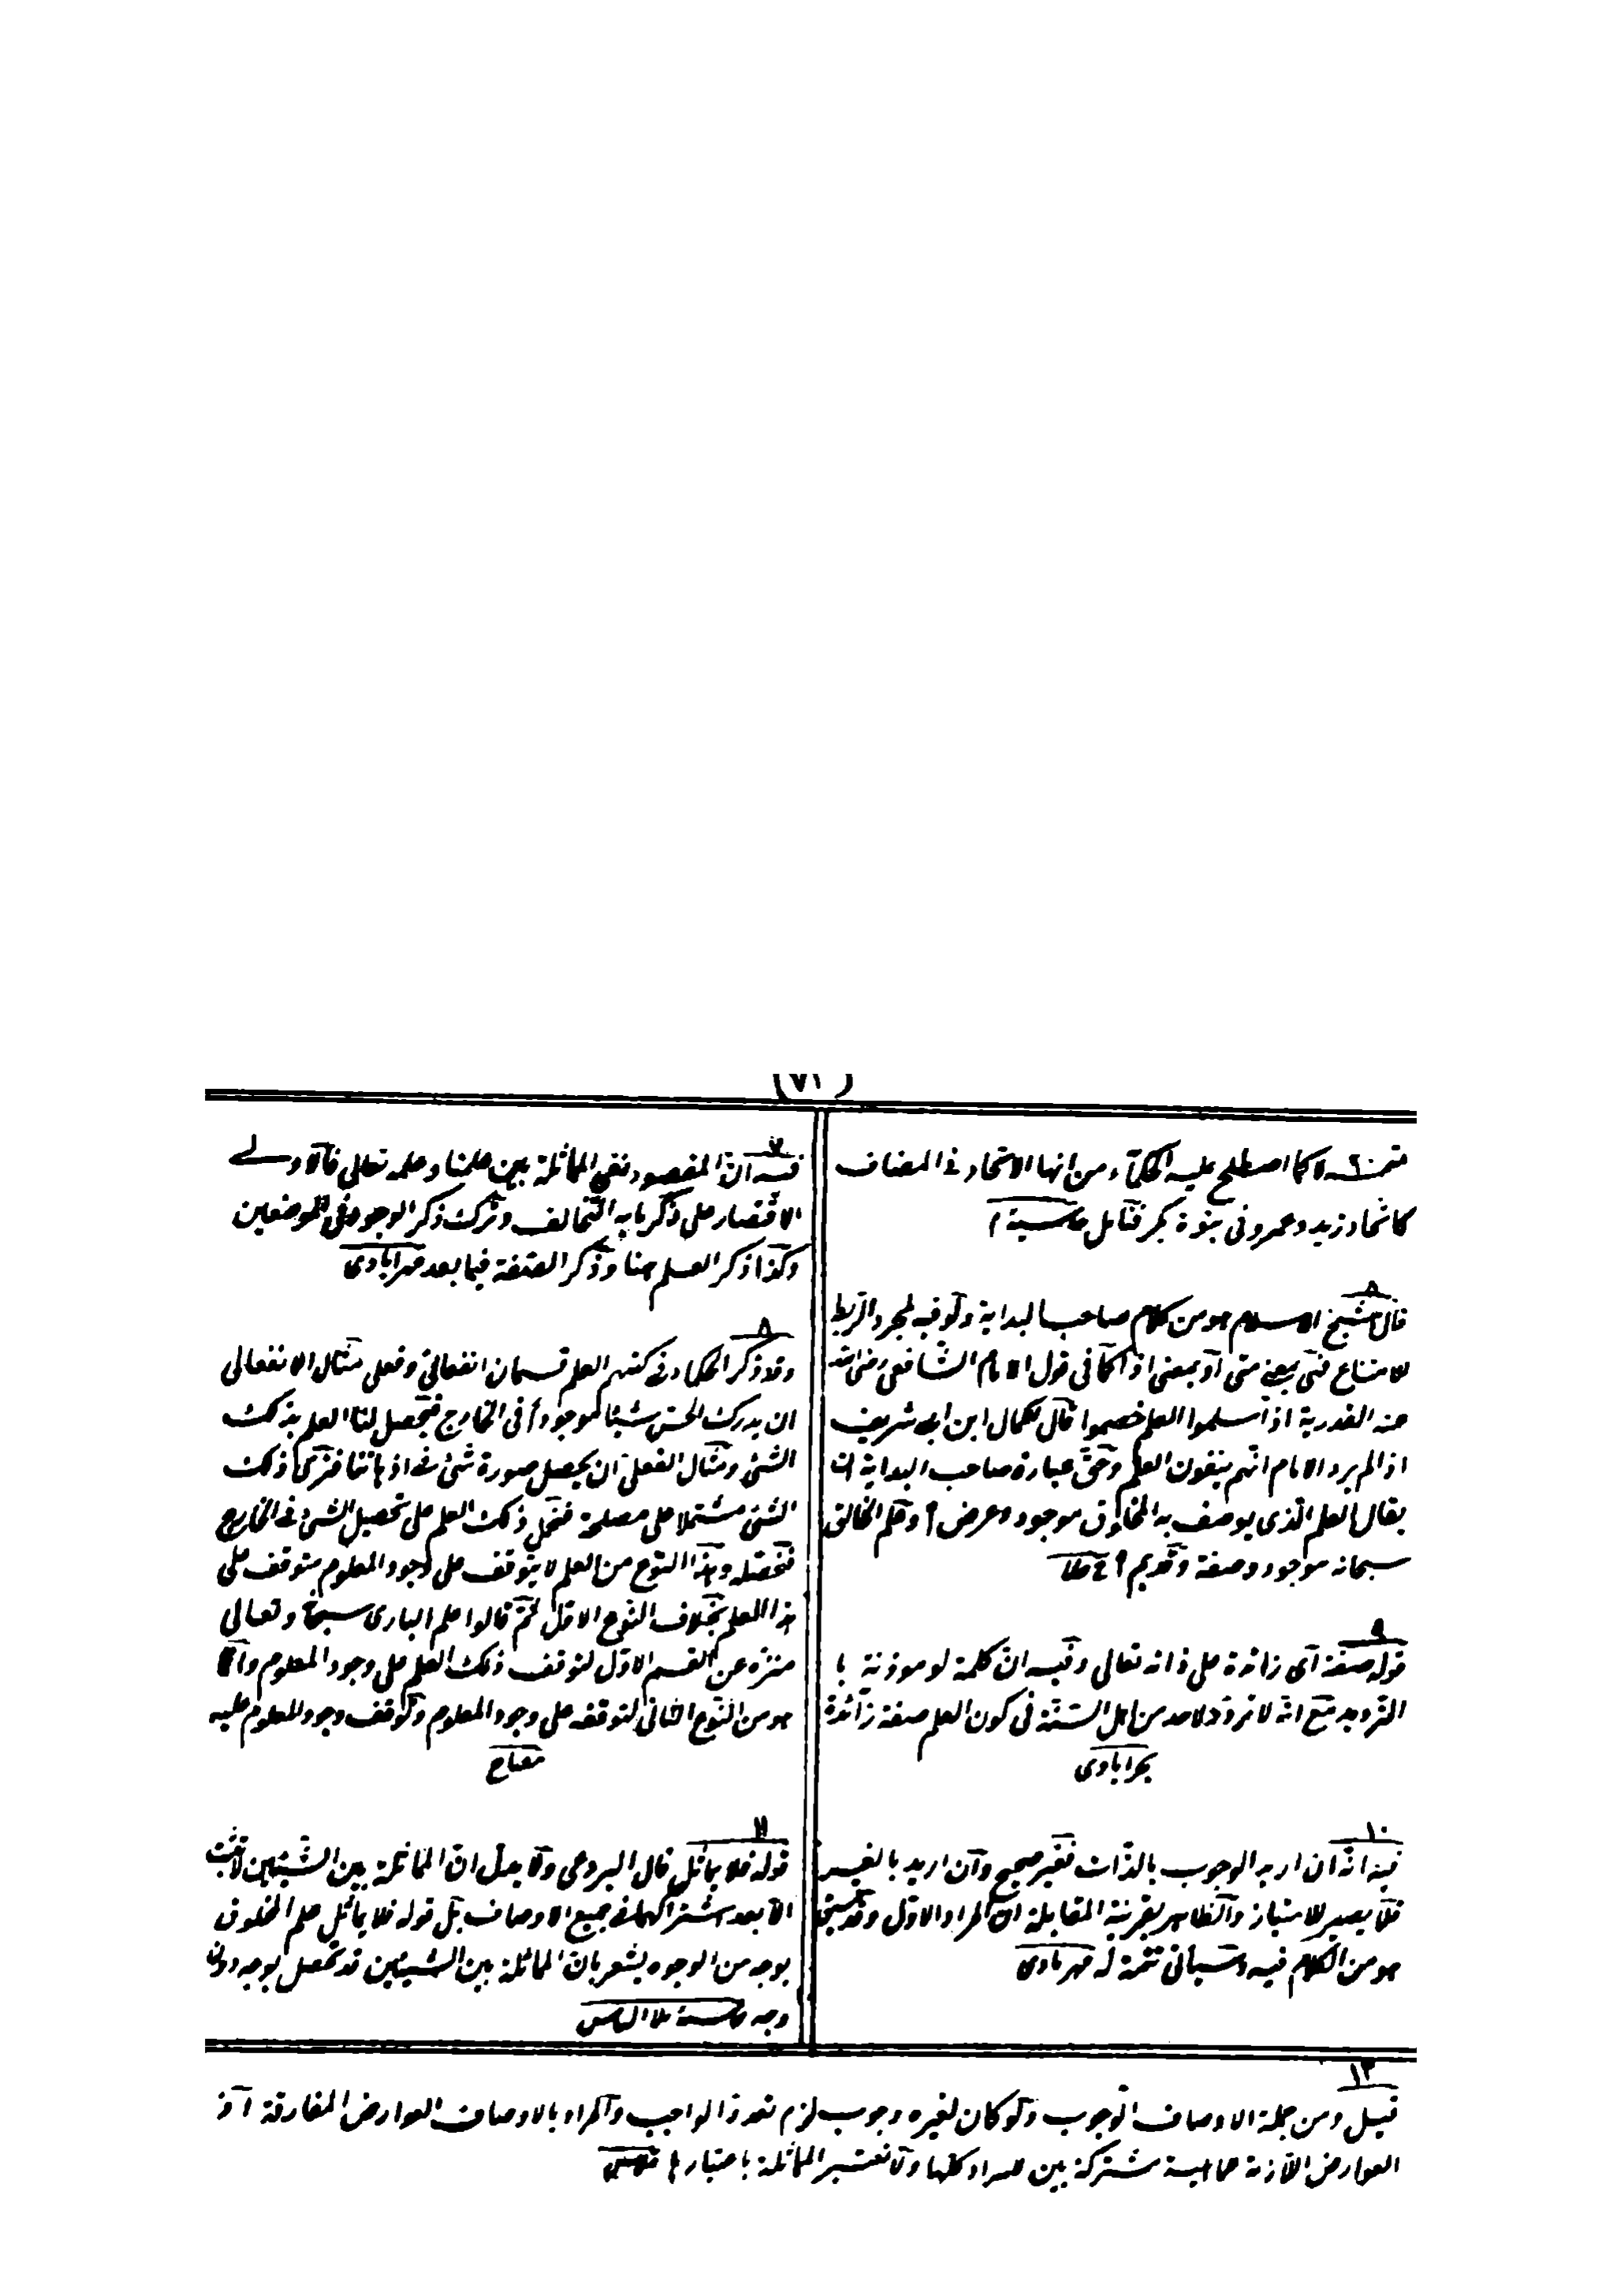 (٧١)
كما اصطلح عليه الحكماء من انها الاتحاد في المضاف
كاتحاد زيد وعمرو في بنوة بكر فتأمل حاشية م
٨
قال شيخ الاسلام هو من كلام صاحب البداية ولو فيه لمجرد الربط
لا متناع فهي بمعنى متى او بمعنى اذا كما في قول الامام الشافعي رضي الله
عنه القدرية اذا سلموا العلم خصموا قال الكمال ابن ابي شريف
اذ لم يرد الامام انهم ينفون العلم وحق عبارة صاحب البداية ان
يقال العلم الذي يوصف به المخلوق موجود وعرض آه وعلم الخالق
سبحانه موجود وصفة وقديم آه
٩
قوله صفة اى زائدة على ذاته تعالى وفيه ان كلمة لو موذنة ؛
الترديد مع انه لا تردد لاحد من اهل السنة في كون العلم صفة زائدة
بحرابادى
١٠
فيه انه ان اريد الوجوب بالذات فغير صحيح وان اريد بالغير
فلا يصير للامتياز والظاهر بقرينة المقابلة ان المراد الاول وقد سبق
هو من الكلام فيه وسيأتي تتمة له مهربادى
٧
فيه ان المقصود نفي المماثلة بين علمنا وعلمه تعالى فالاولى
الاقتصار على ذكر ما به التخالف وترك ذكر الوجود في الموضعين
وكذا ذكر العلم هنا وذكر الصفة فيما بعد مهرابادى
٨
وقد ذكر الحكماء في كتبهم العلم قسمان انفعالي وفعلي مثال الانفعالي
ان يدرك الحس شيئا موجودا في الخارج فيحصل لنا العلم بذلك
الشئ ومثال الفعلي ان يحصل صورة شئ في اذهاننا فنرى ذلك
الشئ مشتملا على مصلحة فنحمل ذلك العلم على تحصيل الشئ في الخارج
فنحصله وهذا النوع من العلم لا يتوقف على وجود المعلوم متوقف على
هذا العلم بخلاف النوع الاول ثم قالوا علم البارى سبحانه وتعالى
منزه عن القسم الاول لتوقف ذلك العلم على وجود المعلوم وانما
هو من النوع الثاني لتوقفه على وجود المعلوم وتوقف وجود المعلوم عليه
مفتاح
١١
قوله فلا يماثل قال البردعى ولا يدل ان المماثلة بين الشيئين لا تثبت
الا بعد اشتراكهما في جميع الاوصاف بل قوله فلا يماثل علم المخلوق
بوجه من الوجوه يشعر بان المماثلة بين الشيئين قد تحصل بوجه دون
وجه حاشية ملا الياس
١٢
قيل ومن جملة الاوصاف الوجوب ولو كان لغيره وجوب لزم تعدد الواجب والمراد بالاوصاف العوارض المفارقة اذ
العوارض اللازمة مشتركة بين افراد كلها ولا تعتبر المماثلة باعتبارها